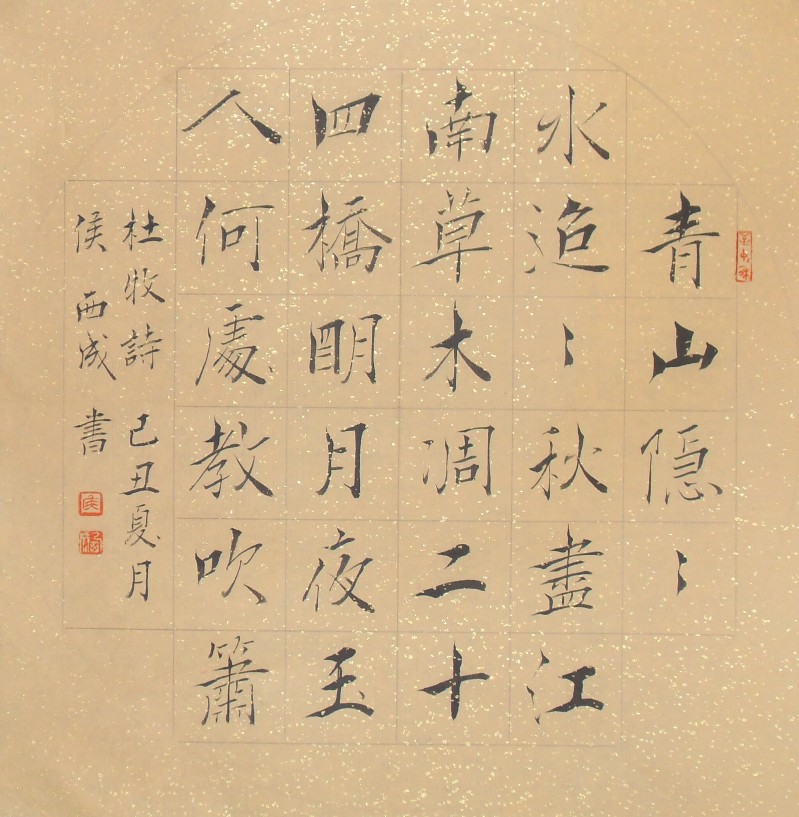 青山隐〻
水迢〻秋盡江
南草木凋二十
四橋明月夜玉
人何處教吹簫
杜牧詩 己丑夏月
侯西成書
侯